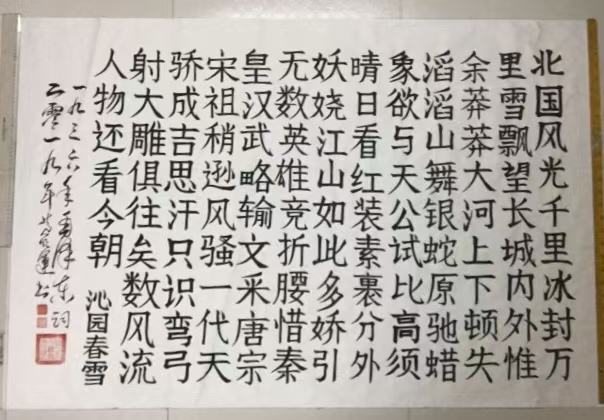 北国风光千里冰封万
里雪飘望长城内外惟
余莽莽大河上下顿失
滔滔山舞银蛇原驰蜡
象欲与天公试比高须
晴日看红装素裹分外
妖娆江山如此多娇引
无数英雄竞折腰惜秦
皇汉武略输文采唐宗
宋祖稍逊风骚一代天
骄成吉思汗只识弯弓
射大雕俱往矣数风流
人物还看今朝 沁园春雪
一九三六年毛泽东词
二零一九年